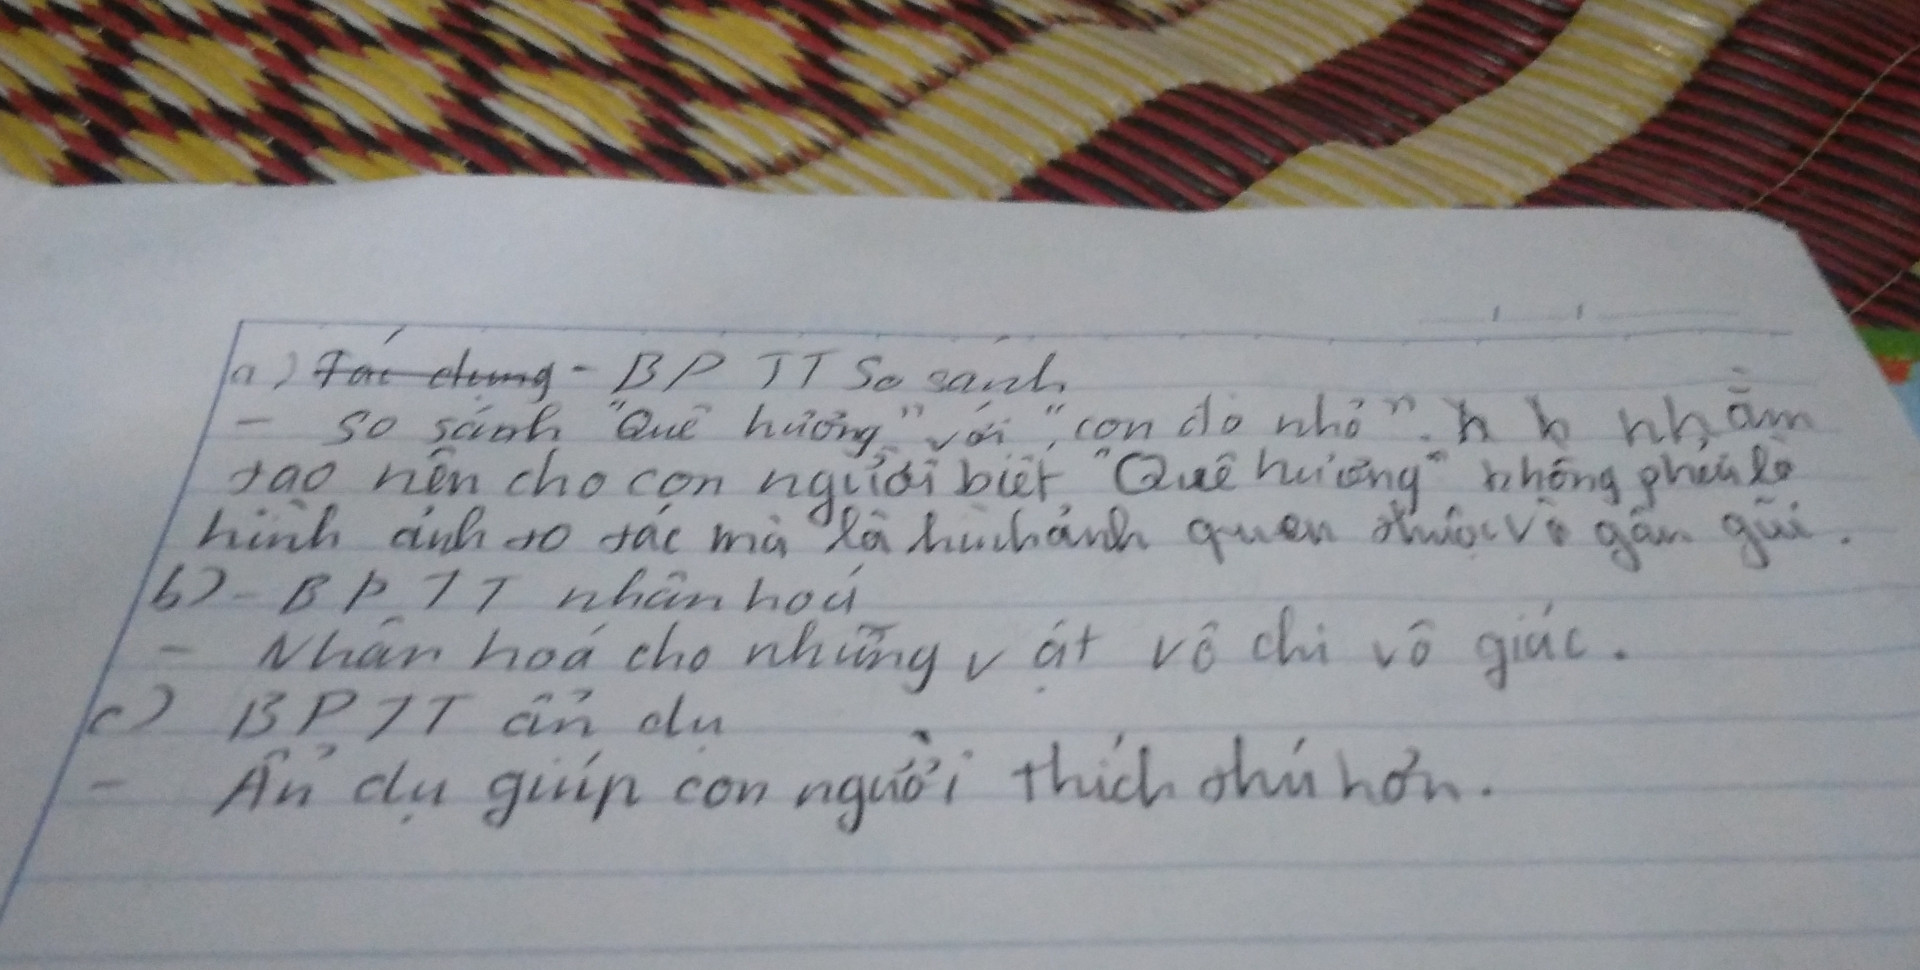 a) Tác dụng - BPTT So sánh
- so sánh "Quê hương" với "con đò nhỏ". h h nhằm
tạo nên cho con người biết "Quê hương" không phải là
hình ảnh to tác mà là hình ảnh quen thuộc và gần gũi.
b) - BPTT nhân hoá
- Nhân hoá cho những vật vô chi vô giác.
c) BPTT ẩn dụ
- Ẩn dụ giúp con người thích thú hơn.